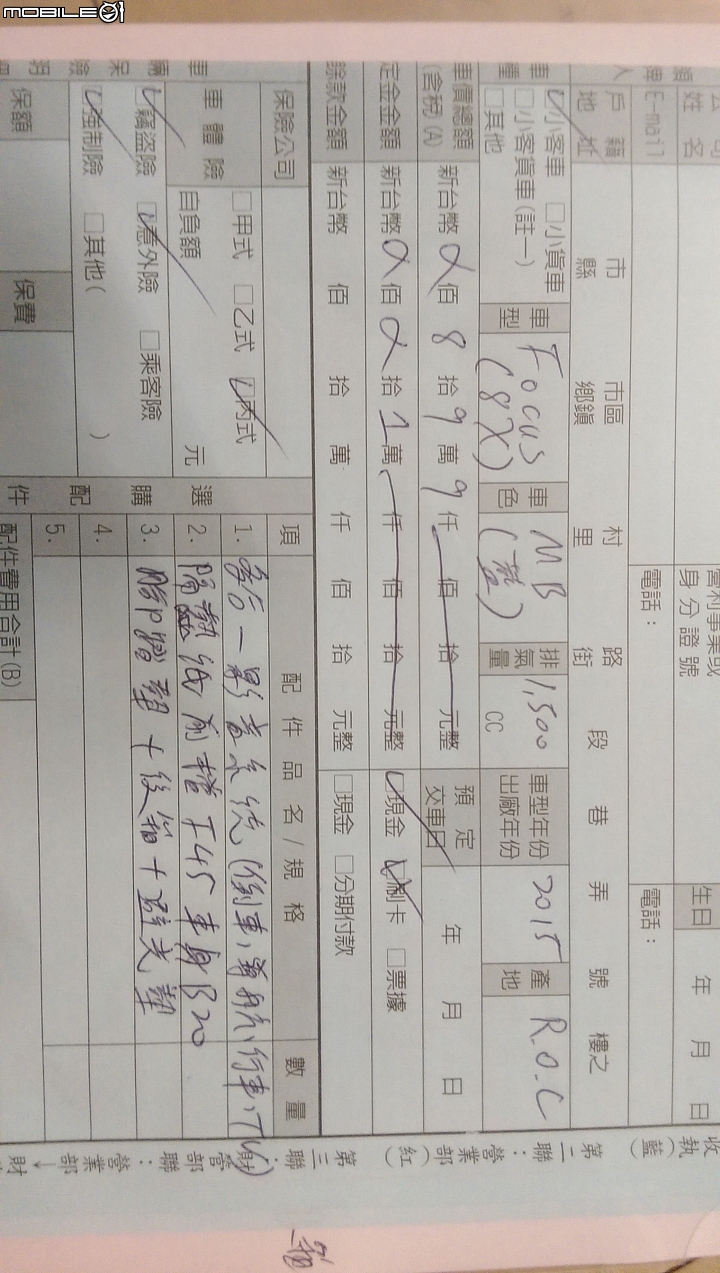 MOBILE01
公司
姓名
營利事業或
身分證號
生日 年 月 日
E-mail
電話：
電話：
戶籍
地址
市
縣
市區
鄉鎮
村
里
路
街
段 巷 弄 號 樓之
車種
☑小客車 □小貨車
□小客貨車(註一)
□其他
車型
Focus
(8X)
車色
MB
(藍)
排氣量
1,500
CC
車型年份
出廠年份
2015
產地
R.O.C
車價總額
(含稅)(A)
新台幣 佰 8 拾 9 萬 9 仟 佰 拾 元整
預定
交車日
年 月 日
定金金額
新台幣 佰 拾 1 萬 仟 佰 拾 元整
☑現金 ☑刷卡 □票據
餘款金額
新台幣 佰 拾 萬 仟 佰 拾 元整
□現金 □分期付款
保險公司
車體險
□甲式 □乙式 ☑丙式
自負額 元
☑竊盜險 ☑意外險 □乘客險
☑強制險 □其他( )
保額
保費
選購配件
項 配件品名/規格 數量
1. 多合一影音系統(倒車、導航、行車、TV)
2. 隔熱紙前檔T45車身B20
3. 腳踏墊+後箱+避光墊
4.
5.
配件費用合計(B)
收執(藍)
第二聯：營業部(紅)
第三聯：營業部